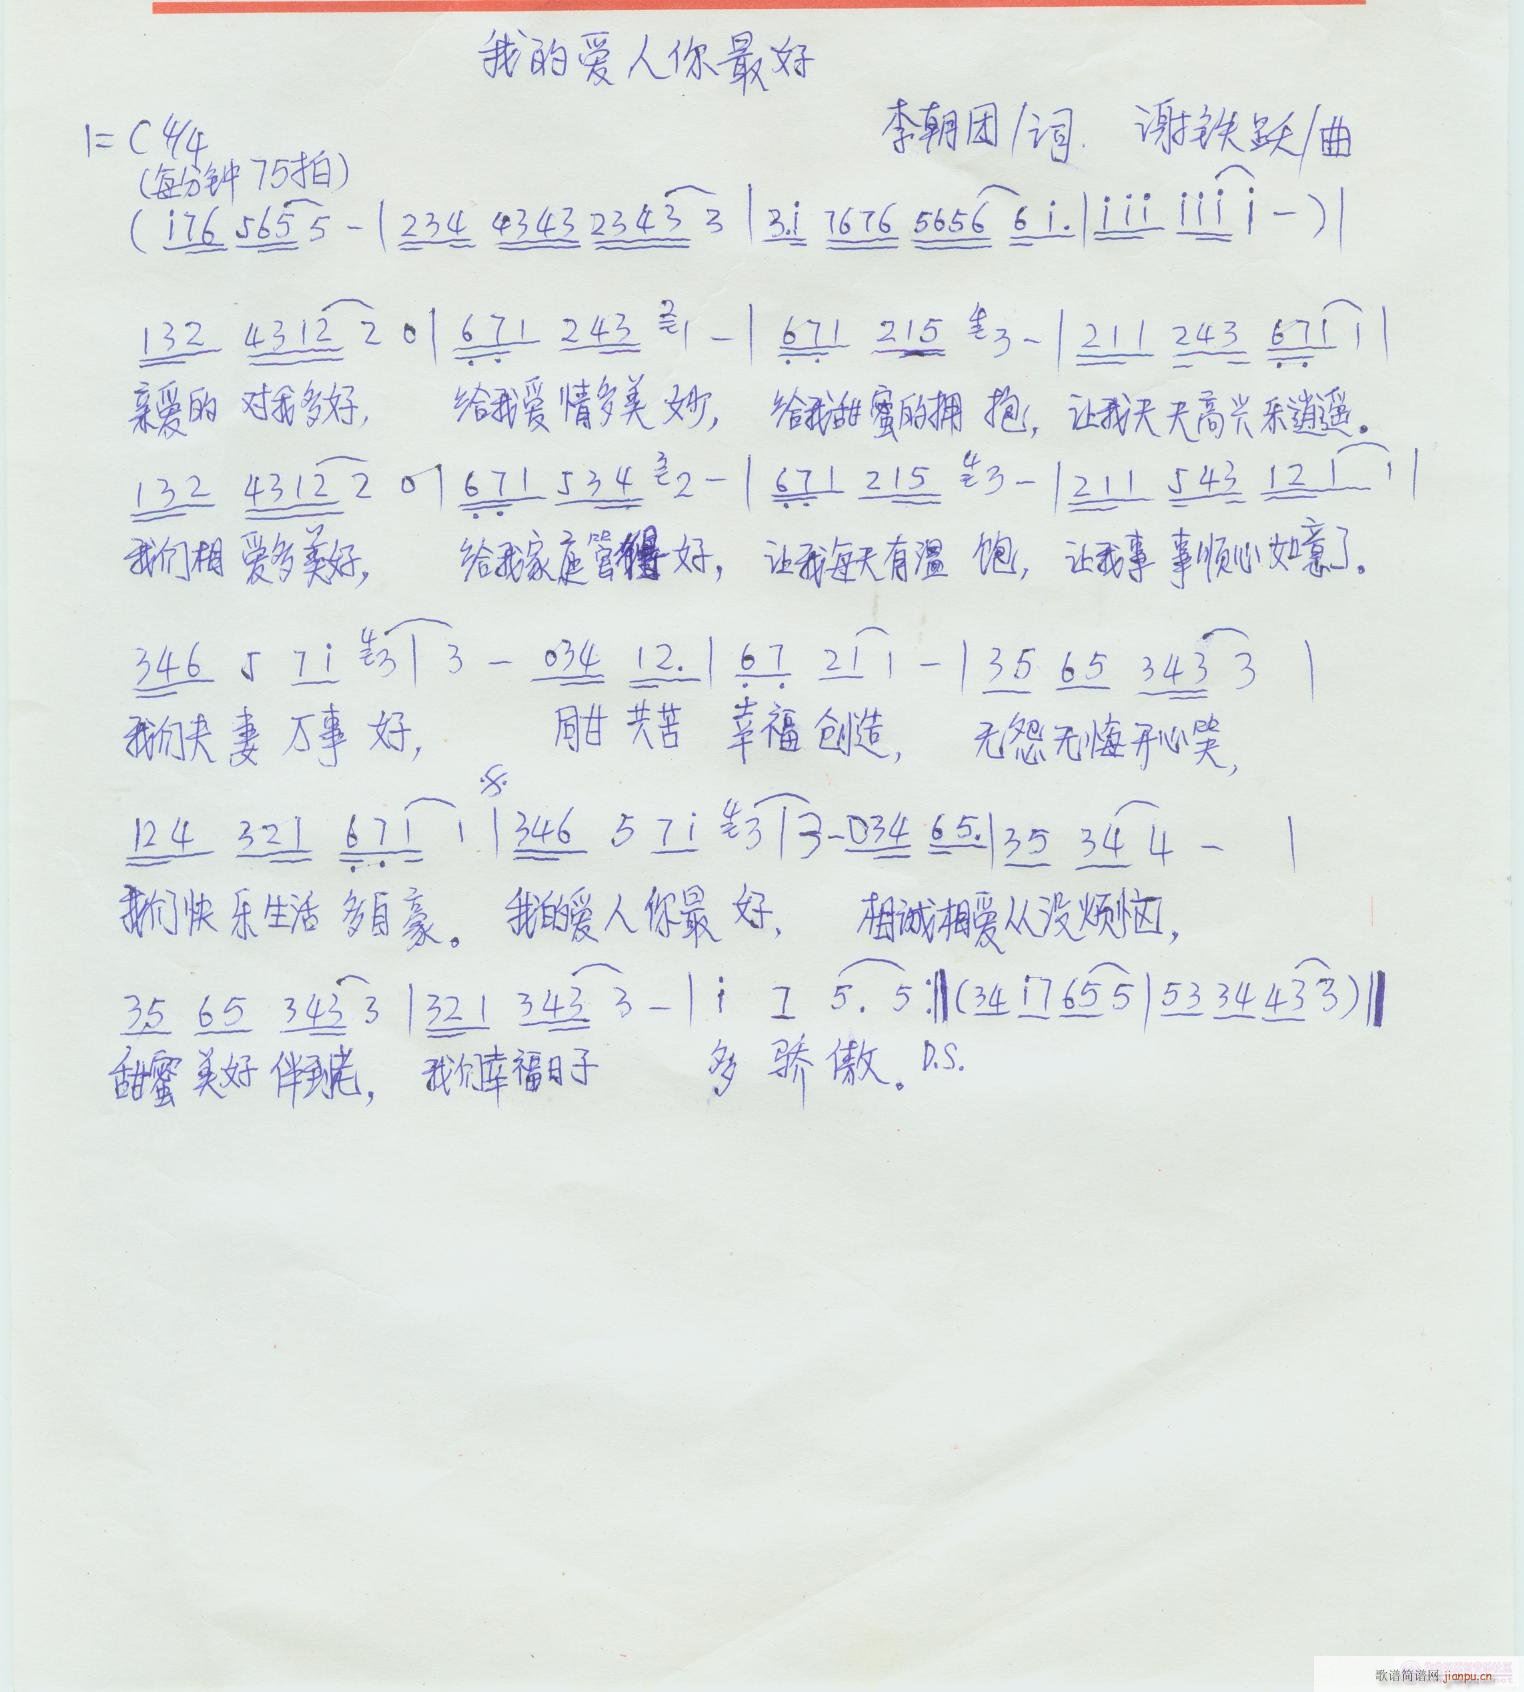 我的爱人你最好
1=C 4/4 李朝团/词. 谢铁跃/曲
(每分钟75拍)
( i76 565 5 - | 234 4343 2343 3 | 3.i 7676 5656 6 i. | iii iii i - ) |
132 4312 2 0 | 671 243 2 1 - | 671 215 4 3 - | 211 243 671 1 |
亲爱的 对我多好, 给我爱情多美妙, 给我甜蜜的拥抱, 让我天天高兴乐逍遥。
132 4312 2 0 | 671 534 3 2 - | 671 215 4 3 - | 211 543 121 1 |
我们相爱多美好, 给我家庭管得好, 让我每天有温饱, 让我事事顺心如意了。
346 5 7i 4 3 | 3 - 034 12. | 67 21 1 - | 35 65 343 3 |
我们夫妻万事好, 同甘共苦 幸福创造, 无怨无悔开心笑,
124 321 671 1 | 346 5 7i 4 3 | 3 - 034 65. | 35 34 4 - |
我们快乐生活多自豪。 我的爱人你最好, 相诚相爱从没烦恼,
35 65 343 3 | 321 343 3 - | i 7 5. 5 :‖ (34 i7 655 | 53 34 43 3) ‖
甜蜜美好伴到老, 我们幸福日子 多骄傲。 D.S.
歌谱简谱网 jianpu.cn